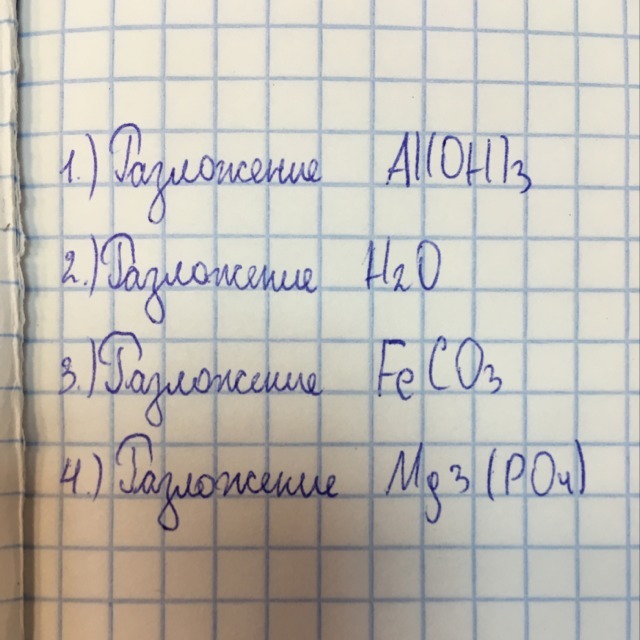 1.) Разложение Al(OH)3
2.) Разложение H2O
3.) Разложение FeCO3
4.) Разложение Mg3(PO4)